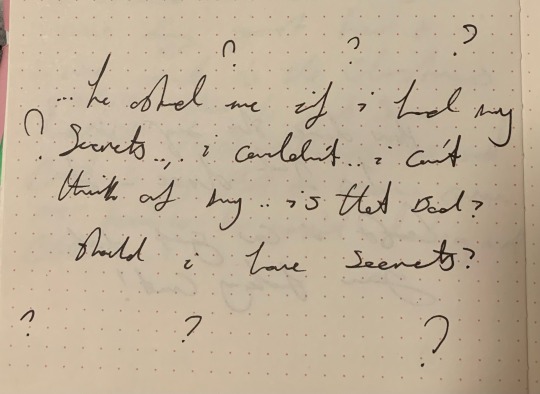 ? ? ?
... he asked me if i had any
? Secrets.... i couldn't... i can't
think of any.. is that bad?
should i have secrets?
? ? ?